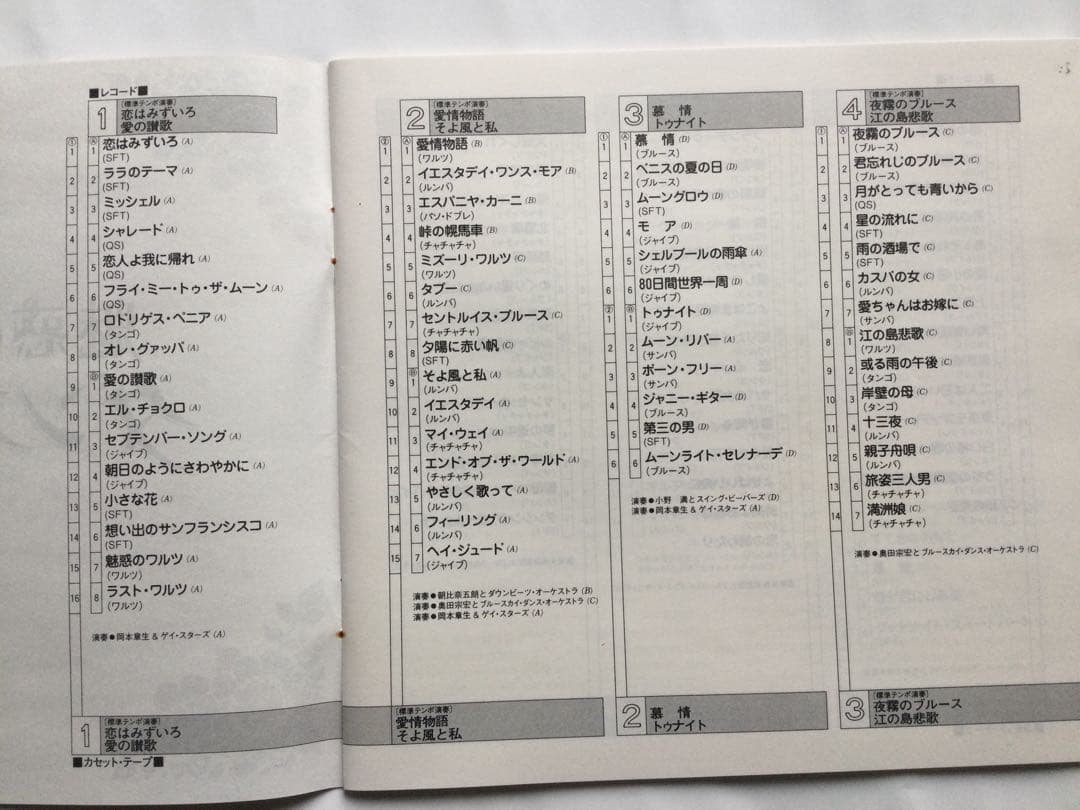 ■レコード■
1
(標準テンポ演奏)
恋はみずいろ
愛の讃歌
① Ⓐ
1 1 恋はみずいろ(A)
(SFT)
2 2 ララのテーマ(A)
(SFT)
3 3 ミッシェル(A)
(SFT)
4 4 シャレード(A)
(QS)
5 5 恋人よ我に帰れ(A)
(QS)
6 6 フライ・ミー・トゥ・ザ・ムーン(A)
(QS)
7 7 ロドリゲス・ペニア(A)
(タンゴ)
8 8 オレ・グァッパ(A)
(タンゴ)
Ⓑ
9 1 愛の讃歌(A)
(タンゴ)
10 2 エル・チョクロ(A)
(タンゴ)
11 3 セプテンバー・ソング(A)
(ジャイブ)
12 4 朝日のようにさわやかに(A)
(ジャイブ)
13 5 小さな花(A)
(SFT)
14 6 想い出のサンフランシスコ(A)
(SFT)
15 7 魅惑のワルツ(A)
(ワルツ)
16 8 ラスト・ワルツ(A)
(ワルツ)
演奏●岡本章生&ゲイ・スターズ(A)
1
(標準テンポ演奏)
恋はみずいろ
愛の讃歌
■カセット・テープ■
2
(標準テンポ演奏)
愛情物語
そよ風と私
② Ⓐ
1 1 愛情物語(B)
(ワルツ)
2 2 イエスタデイ・ワンス・モア(B)
(ルンバ)
3 3 エスパニヤ・カーニ(B)
(パソ・ドブレ)
4 4 峠の幌馬車(B)
(チャチャチャ)
5 5 ミズーリ・ワルツ(C)
(ワルツ)
6 6 タブー(C)
(ルンバ)
7 7 セントルイス・ブルース(C)
(チャチャチャ)
8 8 夕陽に赤い帆(C)
(SFT)
Ⓑ
9 1 そよ風と私(A)
(ルンバ)
10 2 イエスタデイ(A)
(ルンバ)
11 3 マイ・ウェイ(A)
(チャチャチャ)
12 4 エンド・オブ・ザ・ワールド(A)
(チャチャチャ)
13 5 やさしく歌って(A)
(ルンバ)
14 6 フィーリング(A)
(ルンバ)
15 7 ヘイ・ジュード(A)
(ジャイブ)
演奏●朝比奈五朗とダウンビーツ・オーケストラ(B)
演奏●奥田宗宏とブルースカイ・ダンス・オーケストラ(C)
演奏●岡本章生&ゲイ・スターズ(A)
(標準テンポ演奏)
愛情物語
そよ風と私
3
慕 情
トゥナイト
① Ⓐ
1 1 慕 情(D)
(ブルース)
2 2 ベニスの夏の日(D)
(ブルース)
3 3 ムーングロウ(D)
(SFT)
4 4 モ ア(D)
(ジャイブ)
5 5 シェルブールの雨傘(A)
(ジャイブ)
6 6 80日間世界一周(D)
(ジャイブ)
② Ⓑ
1 1 トゥナイト(D)
(ジャイブ)
2 2 ムーン・リバー(A)
(サンバ)
3 3 ボーン・フリー(A)
(サンバ)
4 4 ジャニー・ギター(D)
(ブルース)
5 5 第三の男(D)
(SFT)
6 6 ムーンライト・セレナーデ(D)
(ブルース)
演奏●小野 満とスイング・ビーバーズ(D)
演奏●岡本章生&ゲイ・スターズ(A)
2
慕 情
トゥナイト
4
(標準テンポ演奏)
夜霧のブルース
江の島悲歌
① Ⓐ
1 1 夜霧のブルース(C)
(ブルース)
2 2 君忘れじのブルース(C)
(ブルース)
3 3 月がとっても青いから(C)
(QS)
4 4 星の流れに(C)
(SFT)
5 5 雨の酒場で(C)
(SFT)
6 6 カスバの女(C)
(ルンバ)
7 7 愛ちゃんはお嫁に(C)
(サンバ)
Ⓑ
8 1 江の島悲歌(C)
(ワルツ)
9 2 或る雨の午後(C)
(タンゴ)
10 3 岸壁の母(C)
(タンゴ)
11 4 十三夜(C)
(ルンバ)
12 5 親子舟唄(C)
(ルンバ)
13 6 旅姿三人男(C)
(チャチャチャ)
14 7 満洲娘(C)
(チャチャチャ)
演奏●奥田宗宏とブルースカイ・ダンス・オーケストラ(C)
3
(標準テンポ演奏)
夜霧のブルース
江の島悲歌